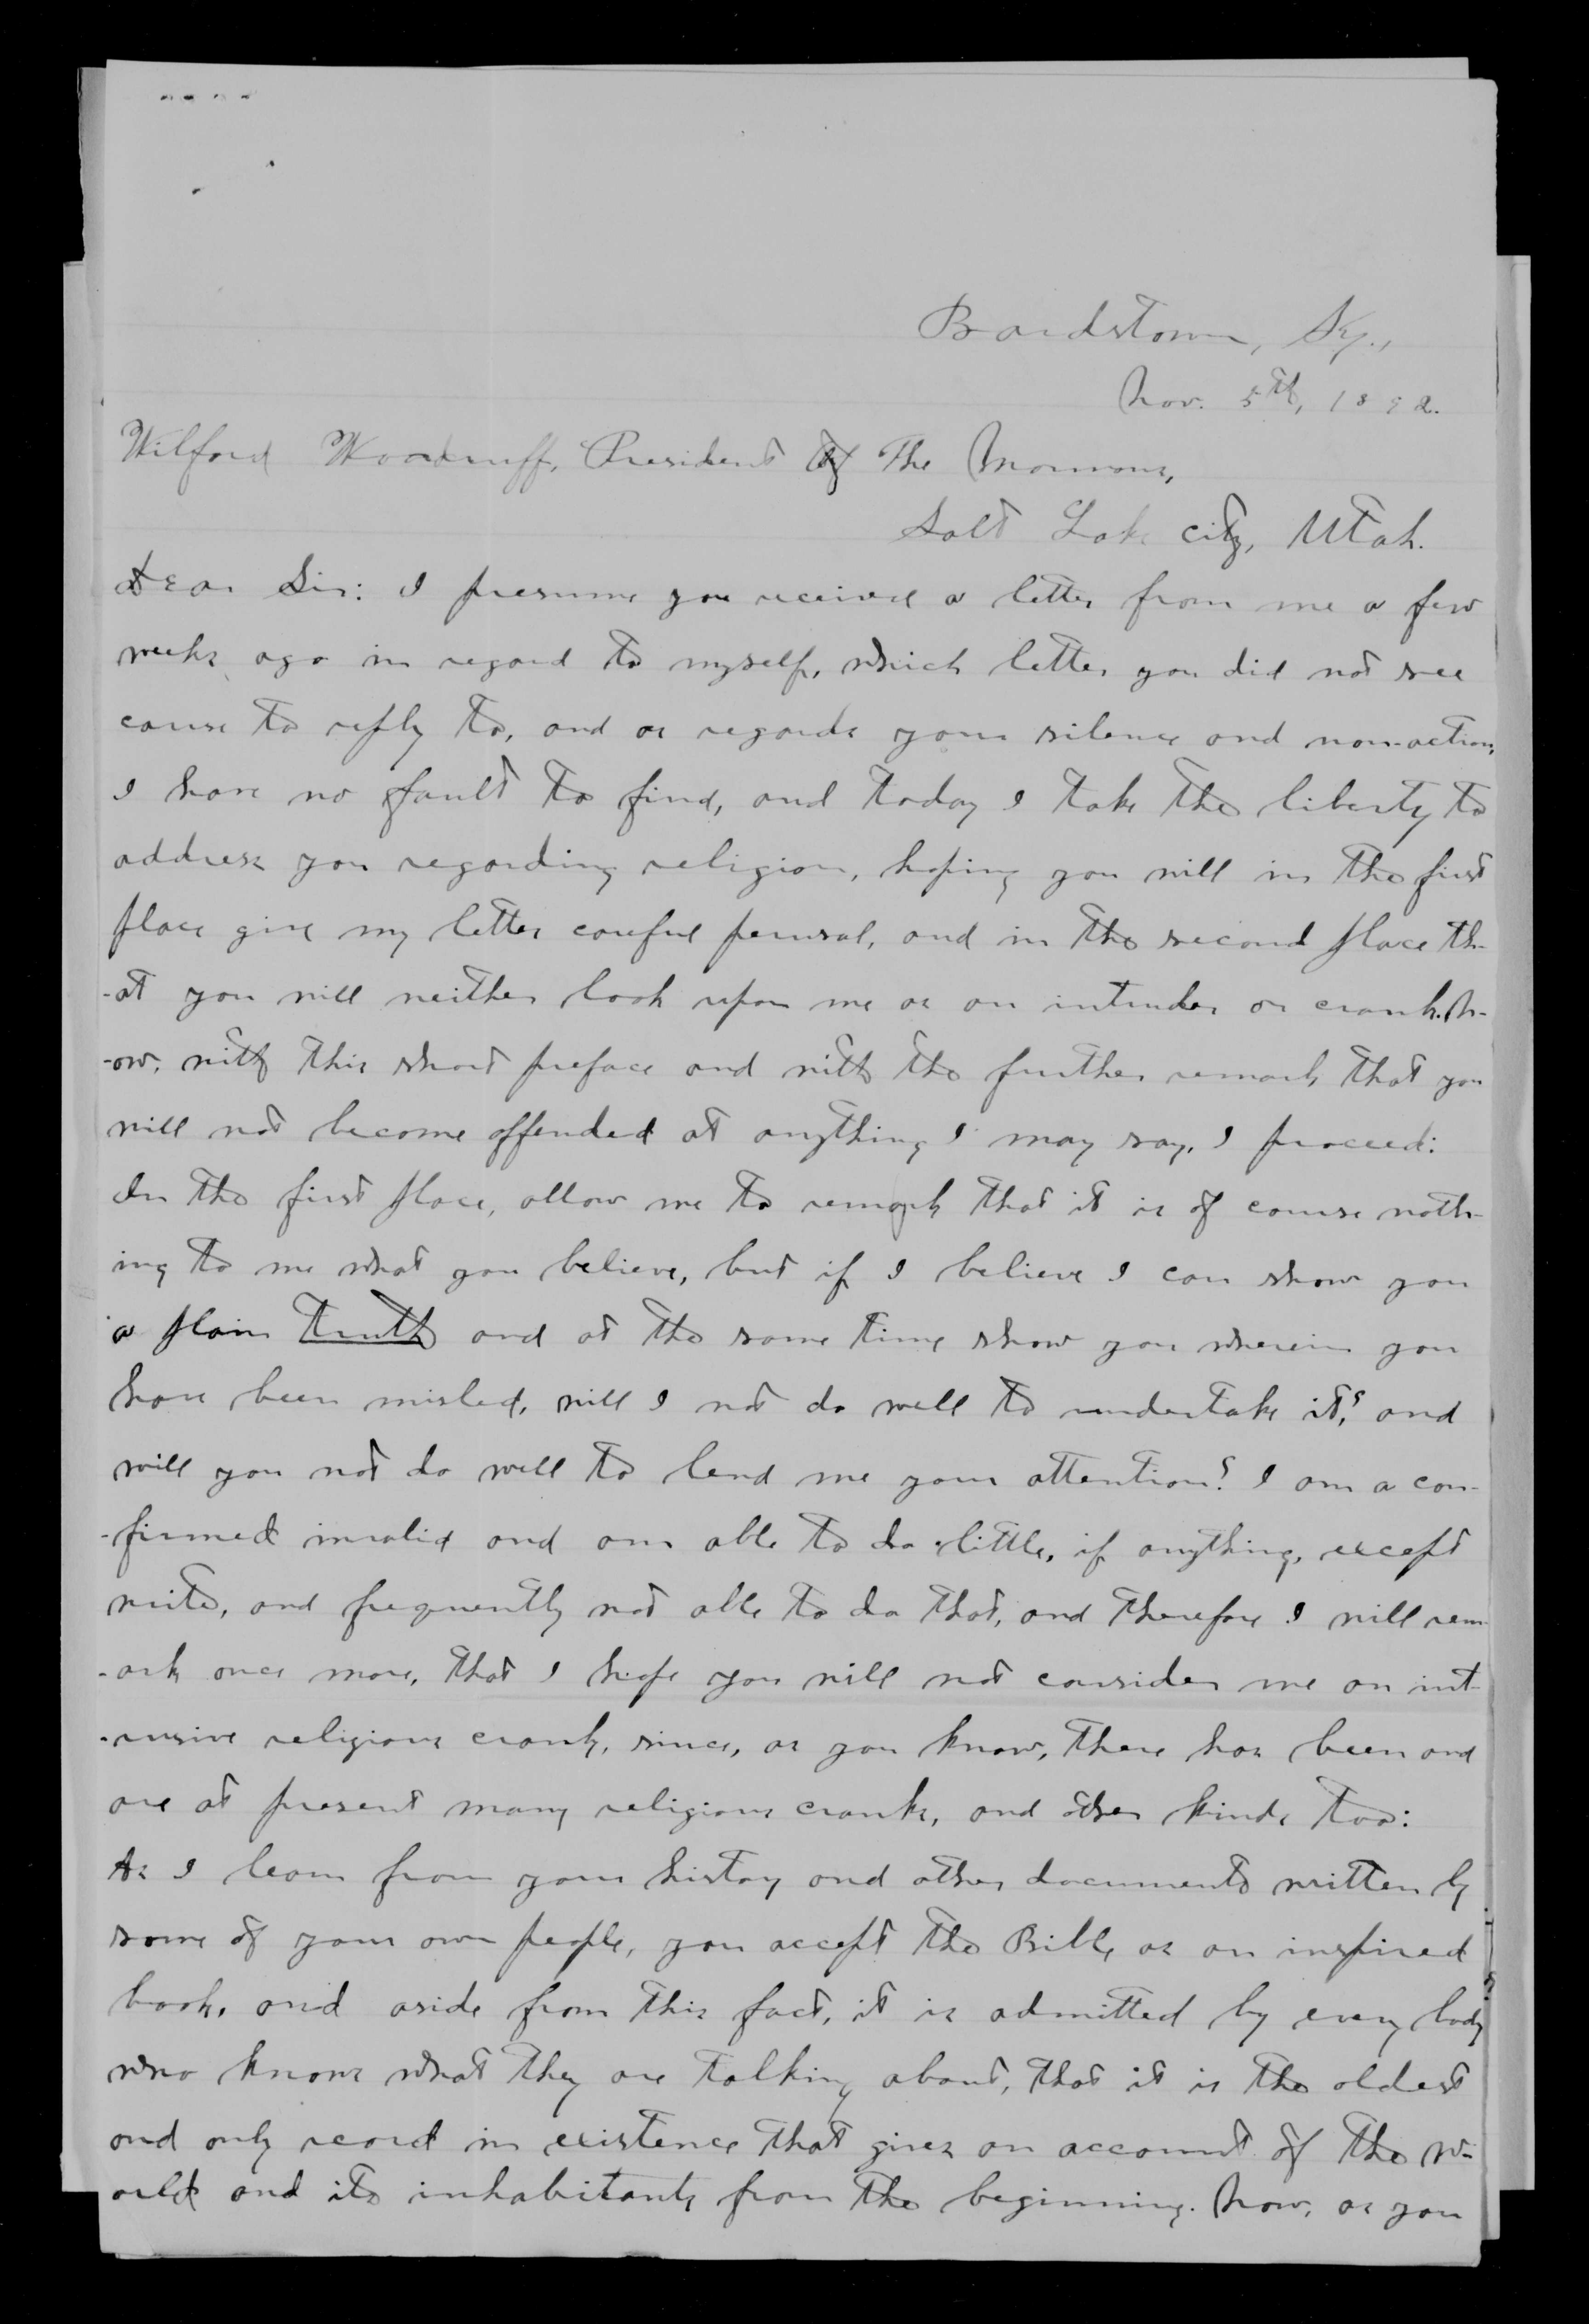 Bardstown, Ky.,
Nov. 5th, 1892.
Wilford Woodruff, President of The Mormons,
Salt Lake city, Utah.
Dear Sir: I presume you received a letter from me a few
weeks ago in regard to myself, which letter you did not see
cause to reply to, and as regards your silence and non-action,
I have no fault to find, and today I take the liberty to
address you regarding religion, hoping you will in the first
place give my letter careful perusal, and in the second place th-
-at you will neither look upon me as an intruder or crank. N-
-ow, with this short preface and with the further remark that you
will not become offended at anything I may say, I proceed:
In the first place, allow me to remark that it is of course noth-
ing to me what you believe, but if I believe I can show you
a plain truth and at the same time show you wherein you
have been misled, will I not do well to undertake it,? and
will you not do well to lend me your attention? I am a con-
-firmed invalid and am able to do little, if anything, except
write, and frequently not able to do that, and therefore I will rem-
-ark once more, that I hope you will not consider me an int-
-rusive religious crank, since, as you know, there has been and
are at present many religious cranks, and other kinds too:
As I learn from your history and other documents written by
some of your own people, you accept the Bible as an inspired
book, and aside from this fact, it is admitted by every body
who knows what they are talking about, that it is the oldest
and only record in existence that gives an account of the w-
orld and its inhabitants from the beginning. Now, as you